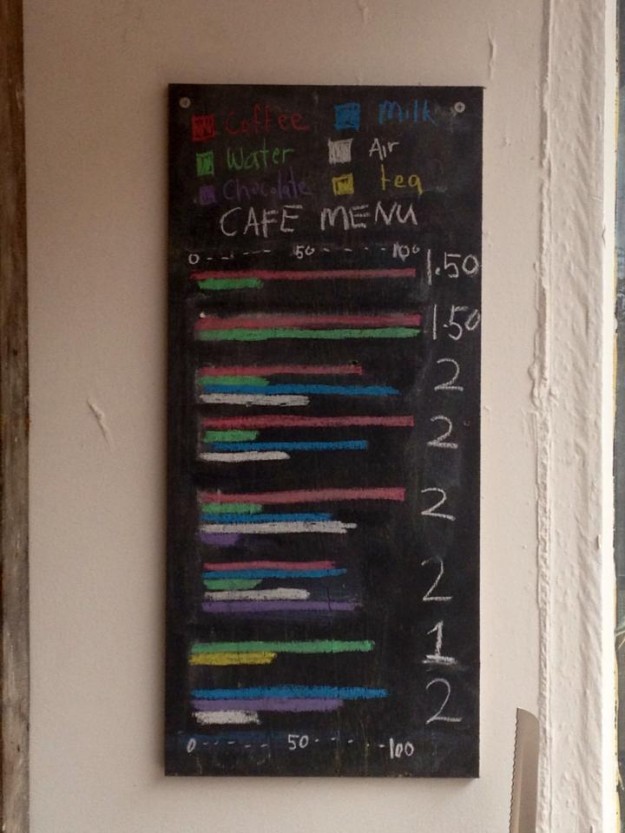 Coffee Milk
Water Air
Chocolate tea
CAFE MENU
0 - - - - - - 50 - - - - - 100
1.50
1.50
2
2
2
2
1
2
0 - - - - - 50 - - - - - 100